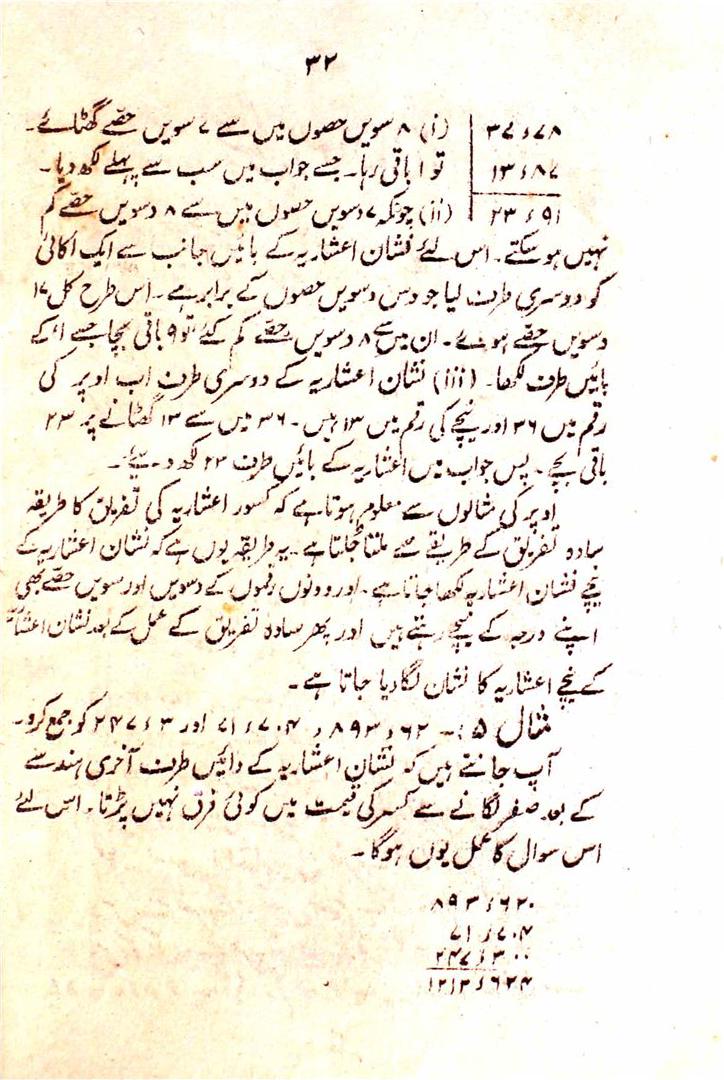 ۳۲
۳۷٫۷۸ (i) ۸ سویں حصوں میں سے ۷ سویں حصّے گھٹائے۔
۱۳٫۸۷ تو ۱ باقی رہا۔ جسے جواب میں سب سے پہلے لکھ دیا۔
۲۳٫۹۱ (ii) چونکہ ۷ دسویں حصوں میں سے ۸ دسویں حصّے کم
نہیں ہو سکتے۔ اس لئے نشان اعشاریہ کے بائیں جانب سے ایک اکائی
کو دوسری طرف لیا جو دس دسویں حصوں کے برابر ہے۔ اس طرح کل ۱۷
دسویں حصّے ہوئے۔ ان میں سے ۸ دسویں حصّے کم کئے تو ۹ باقی بچا جسے ۱ کے
بائیں طرف لکھا۔ (iii) نشان اعشاریہ کے دوسری طرف اب اوپر کی
رقم میں ۳۶ اور نیچے کی رقم میں ۱۳ ہیں۔ ۳۶ میں سے ۱۳ گھٹانے پر ۲۳
باقی بچے۔ پس جواب میں اعشاریہ کے بائیں طرف ۲۳ لکھ دیئے۔
اوپر کی مثالوں سے معلوم ہوتا ہے کہ کسور اعشاریہ کی تفریق کا طریقہ
سادہ تفریق کے طریقے سے ملتا جلتا ہے۔ یہ طریقہ یوں ہے کہ نشان اعشاریہ کے
نیچے نشان اعشاریہ لکھا جاتا ہے۔ اور دونوں رقموں کے دسویں اور سویں حصّے بھی
اپنے درجہ کے نیچے رہتے ہیں اور پھر سادہ تفریق کے عمل کے بعد نشان اعشاریہ
کے نیچے اعشاریہ کا نشان لگا دیا جاتا ہے۔
مثال ۱۵:۔ ۸۹۳٫۶۲، ۷۱٫۷۰۴ اور ۲۴۷٫۳ کو جمع کرو۔
آپ جانتے ہیں کہ نشانِ اعشاریہ کے دائیں طرف آخری ہندسے
کے بعد صفر لگانے سے کسر کی قیمت میں کوئی فرق نہیں پڑتا۔ اس لئے
اس سوال کا عمل یوں ہوگا۔
۸۹۳٫۶۲۰
۷۱٫۷۰۴
۲۴۷٫۳۰۰
۱۲۱۲٫۶۲۴